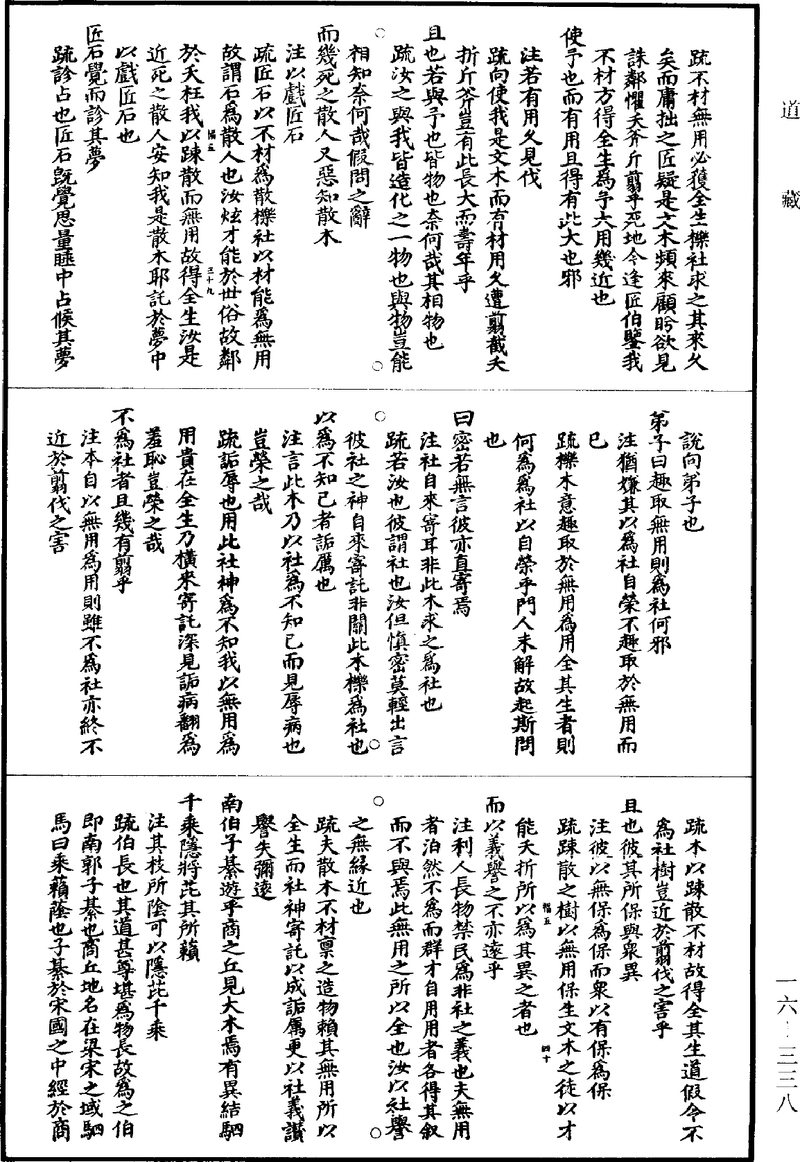 道藏
疏不材無用必獲全生櫟社求之其來久
矣而庸拙之匠疑是文木頻來顧盻欲見
誅鄰懼夭斧斤翦乎死地今逢匠伯鑒我
不材方得全生為予大用幾近也
使予也而有用且得有此大也邪
注若有用久見伐
疏向使我是文木而有材用久遭翦截夭
折斤斧豈有此長大而壽年乎
且也若與予也皆物也奈何哉其相物也
疏汝之與我皆造化之一物也與物豈能
相知奈何哉假問之辭
而幾死之散人又惡知散木
注以戲匠石
疏匠石以不材為散櫟社以材能為無用
故謂石為散人也汝炫才能於世俗故鄰
於夭枉我以踈散而無用故得全生汝是
近死之散人安知我是散木耶託於夢中
以戲匠石也
匠石覺而診其夢
疏診占也匠石既覺思量睡中占候其夢
福五
三十九
說向弟子也
弟子曰趣取無用則為社何邪
注猶嫌其以為社自榮不趣取於無用而
已
疏櫟木意趣取於無用為用全其生者則
何為為社以自榮乎門人未解故起斯問
也
曰密若無言彼亦直寄焉
注社自來寄耳非此木求之為社也
疏若汝也彼謂社也汝但慎密莫輕出言
彼社之神自來寄託非關此木櫟為社也
以為不知己者詬厲也
注言此木乃以社為不知己而見辱病也
豈榮之哉
疏詬辱也用此社神為不知我以無用為
用貴在全生乃橫來寄託深見詬病翻為
羞恥豈榮之哉
不為社者且幾有翦乎
注本自以無用為用則雖不為社亦終不
近於翦伐之害
疏木以踈散不材故得全其生道假令不
為社樹豈近於翦伐之害乎
且也彼其所保與衆異
注彼以無保為保而衆以有保為保
疏踈散之樹以無用保生文木之徒以才
能夭折所以為其異之者也
而以義譽之不亦遠乎
注利人長物禁民為非社之義也夫無用
者泊然不為而群才自用用者各得其叙
而不與焉此無用之所以全也汝以社譽
之無緣近也
疏夫散木不材稟之造物賴其無用所以
全生而社神寄託以成詬厲更以社義讚
譽失彌遠
南伯子綦遊乎商之丘見大木焉有異結駟
千乘隱將芘其所藾
注其枝所陰可以隱芘千乘
疏伯長也其道甚尊堪為物長故為之伯
即南郭子綦也商丘地名在梁宋之域駟
馬曰乘藾蔭也子綦於宋國之中經於商
福五
四十
一六·三三八